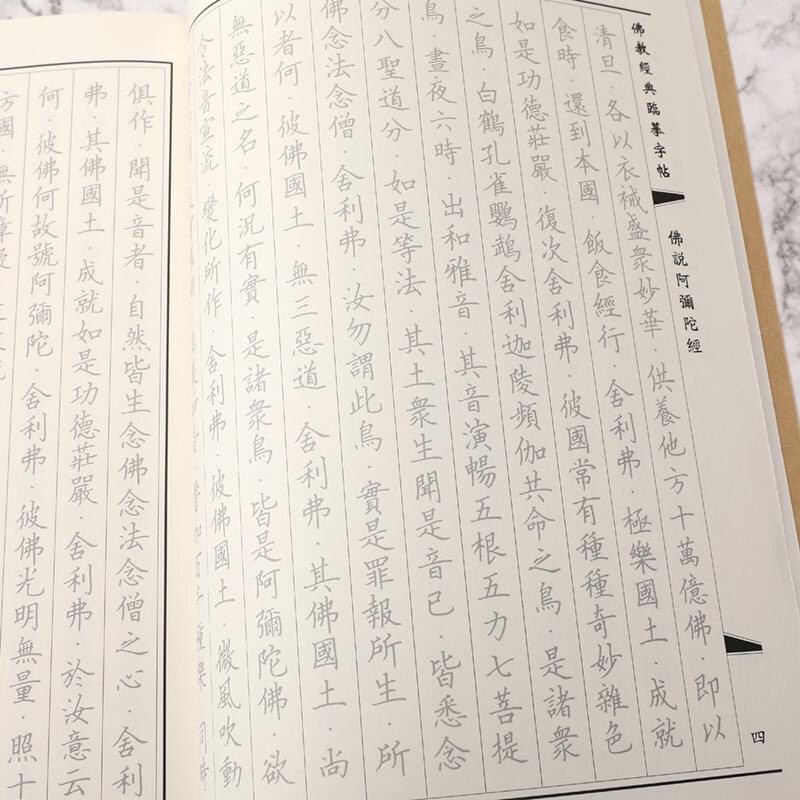 佛教經典臨摹字帖
佛說阿彌陀經
四
清旦．各以衣裓盛衆妙華．供養他方十萬億佛．即以
食時．還到本國．飯食經行．舍利弗．極樂國土．成就
如是功德莊嚴 復次舍利弗．彼國常有種種奇妙雜色
之鳥．白鶴孔雀鸚鵡舍利迦陵頻伽共命之鳥．是諸衆
鳥．晝夜六時．出和雅音．其音演暢五根五力七菩提
分八聖道分．如是等法．其土衆生聞是音已．皆悉念
佛念法念僧．舍利弗．汝勿謂此鳥．實是罪報所生．所
以者何．彼佛國土．無三惡道．舍利弗．其佛國土．尚
無惡道之名．何況有實 是諸衆鳥．皆是阿彌陀佛．欲
令法音宣流．變化所作 舍利弗 彼佛國土．微風吹動
百千種樂．同時
俱作．聞是音者．自然皆生念佛念法念僧之心．舍利
弗．其佛國土．成就如是功德莊嚴．舍利弗．於汝意云
何．彼佛何故號阿彌陀．舍利弗．彼佛光明無量．照十
方國．無所障礙